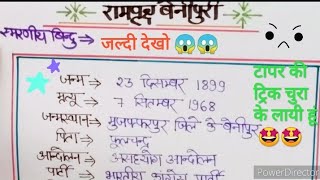 रामवृक्ष बेनीपुरी
स्मरणीय बिन्दु → जल्दी देखो
टापर की
ट्रिक चुरा
के लायी हूं
जन्म → 23 दिसम्बर 1899
मृत्यु → 7 सितम्बर 1968
जन्मस्थान → मुजफ्फरपुर जिले के बेनीपुर
पिता → फूलचन्द्र
आन्दोलन → असहयोग आन्दोलन
पार्टी → भारतीय कांग्रेस पार्टी
PowerDirector